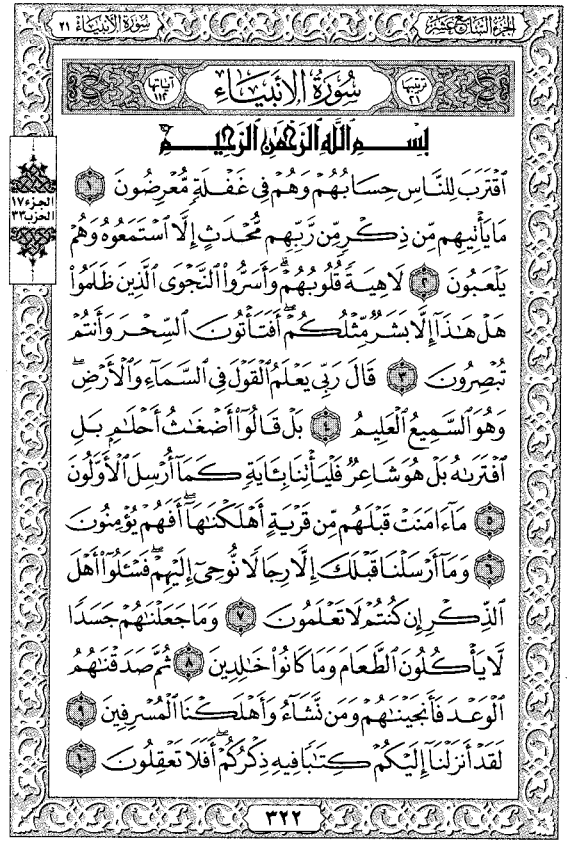 الجزء السابع عشر
سورة الأنبياء ٢١
ترتيبها ٢١
سُورَةُ الأَنبِيَاءِ
آياتها ١١٢
بِسْمِ اللَّهِ الرَّحْمَٰنِ الرَّحِيمِ
ٱقْتَرَبَ لِلنَّاسِ حِسَابُهُمْ وَهُمْ فِى غَفْلَةٍ مُّعْرِضُونَ ١
مَا يَأْتِيهِم مِّن ذِكْرٍ مِّن رَّبِّهِم مُّحْدَثٍ إِلَّا ٱسْتَمَعُوهُ وَهُمْ
يَلْعَبُونَ ٢ لَاهِيَةً قُلُوبُهُمْ ۗ وَأَسَرُّوا۟ ٱلنَّجْوَى ٱلَّذِينَ ظَلَمُوا۟
هَلْ هَـٰذَآ إِلَّا بَشَرٌ مِّثْلُكُمْ ۖ أَفَتَأْتُونَ ٱلسِّحْرَ وَأَنتُمْ
تُبْصِرُونَ ٣ قَالَ رَبِّى يَعْلَمُ ٱلْقَوْلَ فِى ٱلسَّمَآءِ وَٱلْأَرْضِ ۖ
وَهُوَ ٱلسَّمِيعُ ٱلْعَلِيمُ ٤ بَلْ قَالُوٓا۟ أَضْغَـٰثُ أَحْلَـٰمٍۭ بَلِ
ٱفْتَرَىٰهُ بَلْ هُوَ شَاعِرٌ فَلْيَأْتِنَا بِـَٔايَةٍ كَمَآ أُرْسِلَ ٱلْأَوَّلُونَ
٥ مَآ ءَامَنَتْ قَبْلَهُم مِّن قَرْيَةٍ أَهْلَكْنَـٰهَآ ۖ أَفَهُمْ يُؤْمِنُونَ
٦ وَمَآ أَرْسَلْنَا قَبْلَكَ إِلَّا رِجَالًا نُّوحِىٓ إِلَيْهِمْ ۖ فَسْـَٔلُوٓا۟ أَهْلَ
ٱلذِّكْرِ إِن كُنتُمْ لَا تَعْلَمُونَ ٧ وَمَا جَعَلْنَـٰهُمْ جَسَدًا
لَّا يَأْكُلُونَ ٱلطَّعَامَ وَمَا كَانُوا۟ خَـٰلِدِينَ ٨ ثُمَّ صَدَقْنَـٰهُمُ
ٱلْوَعْدَ فَأَنجَيْنَـٰهُمْ وَمَن نَّشَآءُ وَأَهْلَكْنَا ٱلْمُسْرِفِينَ ٩
لَقَدْ أَنزَلْنَآ إِلَيْكُمْ كِتَـٰبًا فِيهِ ذِكْرُكُمْ ۖ أَفَلَا تَعْقِلُونَ ١٠
الجزء ١٧
الحزب ٣٣
٣٢٢